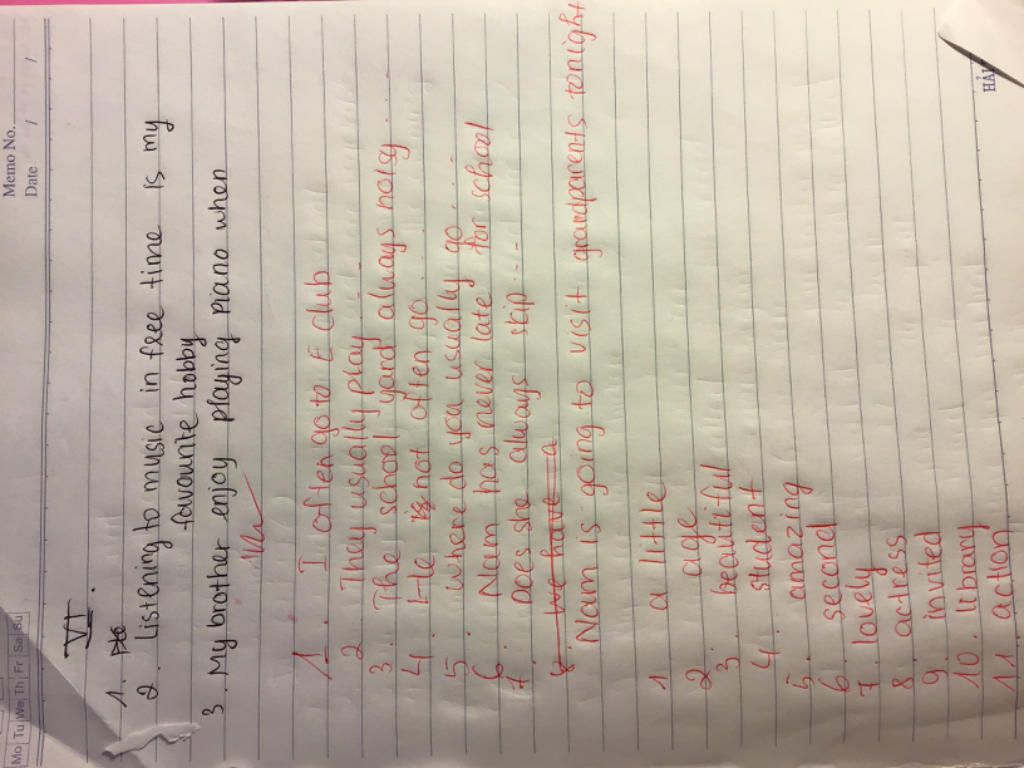 Memo No.
Date / /
Mo Tu We Th Fr Sa Su
VI.
1.
2. Listening to music in free time is my
favourite hobby
3. My brother enjoy playing piano when
1. I often go to E club
2. They usually play
3. The school yard always noisy.
4. He is not often go
5. Where do you usually go...
6. Nam has never late for school
7. Does she always skip...
8. we have a
Nam is going to visit grandparents tonight
1 a little
2 age
3. beautiful
4. student
5. amazing
6. second
7. lovely
8 actress
9. invited
10. library
11. action